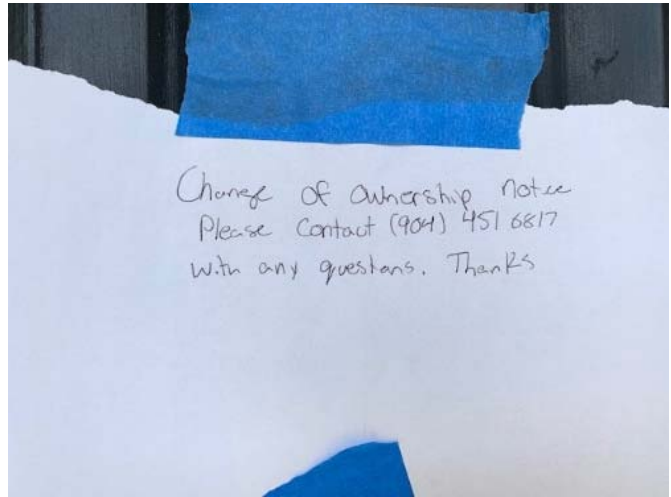 Change of ownership notice
Please Contact (904) 451 6817
with any questions. Thanks